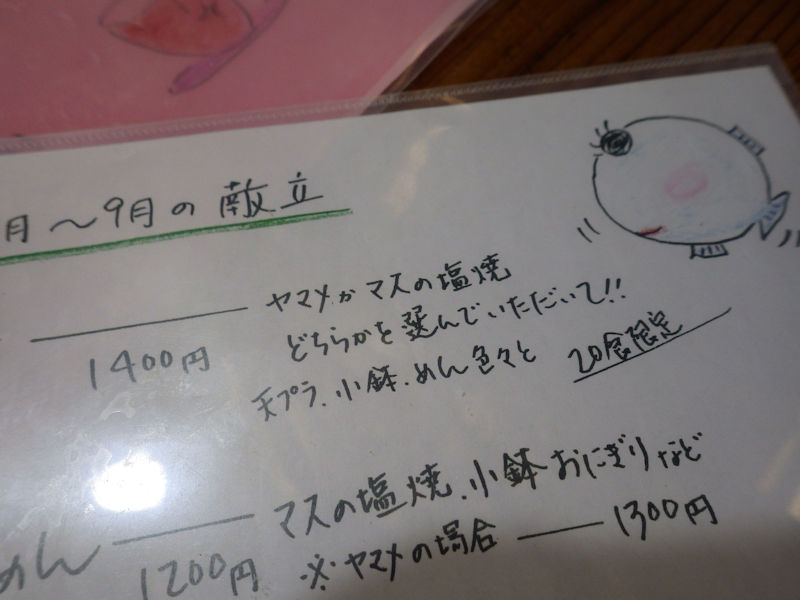 月〜9月の献立
ヤマメかマスの塩焼
1400円 どちらかを選んでいただいて!!
天プラ、小鉢、めん色々と 20食限定
めん マスの塩焼、小鉢おにぎりなど
1200円 ※ヤマメの場合 1300円